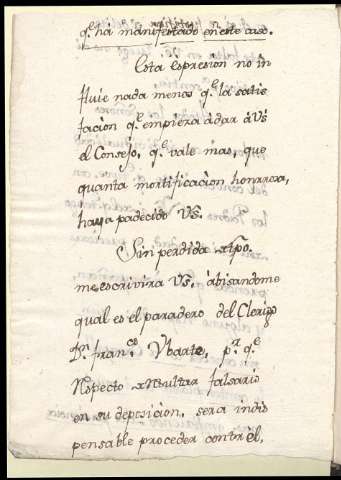 q.e ha manifestado en este caso.
Esta espresion no in
fluie nada menos q.e la satis
facion q.e empieza a dar à VS
el Consejo, q.e vale mas, que
quanta mortificacion honarosa,
haya padecido VS.
Sin perdida tpo.
me escrivira VS. abisandome
qual es el paradero del Clerigo
Dn. Fran.co Ybarte, p.r q.e
Respecto resultar falsario
en su deposicion, sera indis
pensable proceder contr èl,